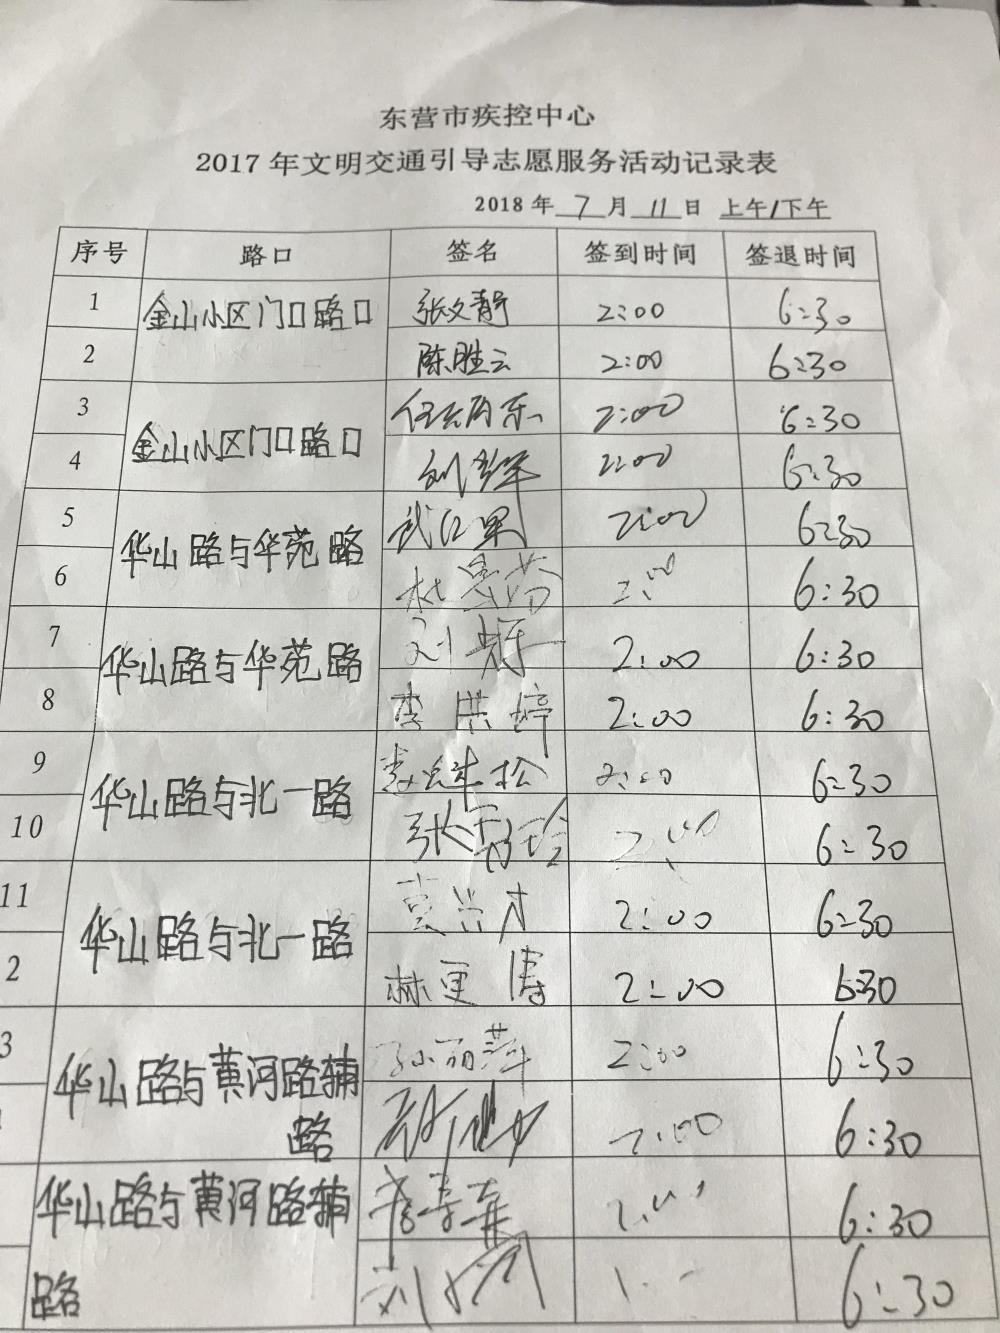 东营市疾控中心
2017 年文明交通引导志愿服务活动记录表
2018 年 7 月 11 日 上午/下午
序号 路口 签名 签到时间 签退时间
1 金山小区门口路口 张文静 2:00 6:30
2 陈胜云 2:00 6:30
3 金山小区门口路口 2:00 6:30
4 刘 2:00 6:30
5 华山路与华苑路 武江果 2:00 6:30
6 杜 2:00 6:30
7 华山路与华苑路 刘 2:00 6:30
8 李洪婷 2:00 6:30
9 华山路与北一路 松 2:00 6:30
10 张 玲 2:00 6:30
11 华山路与北一路 2:00 6:30
2 林更涛 2:00 6:30
3 华山路与黄河路辅路 孙丽萍 2:00 6:30
2:00 6:30
华山路与黄河路辅路 6:30
刘 6:30